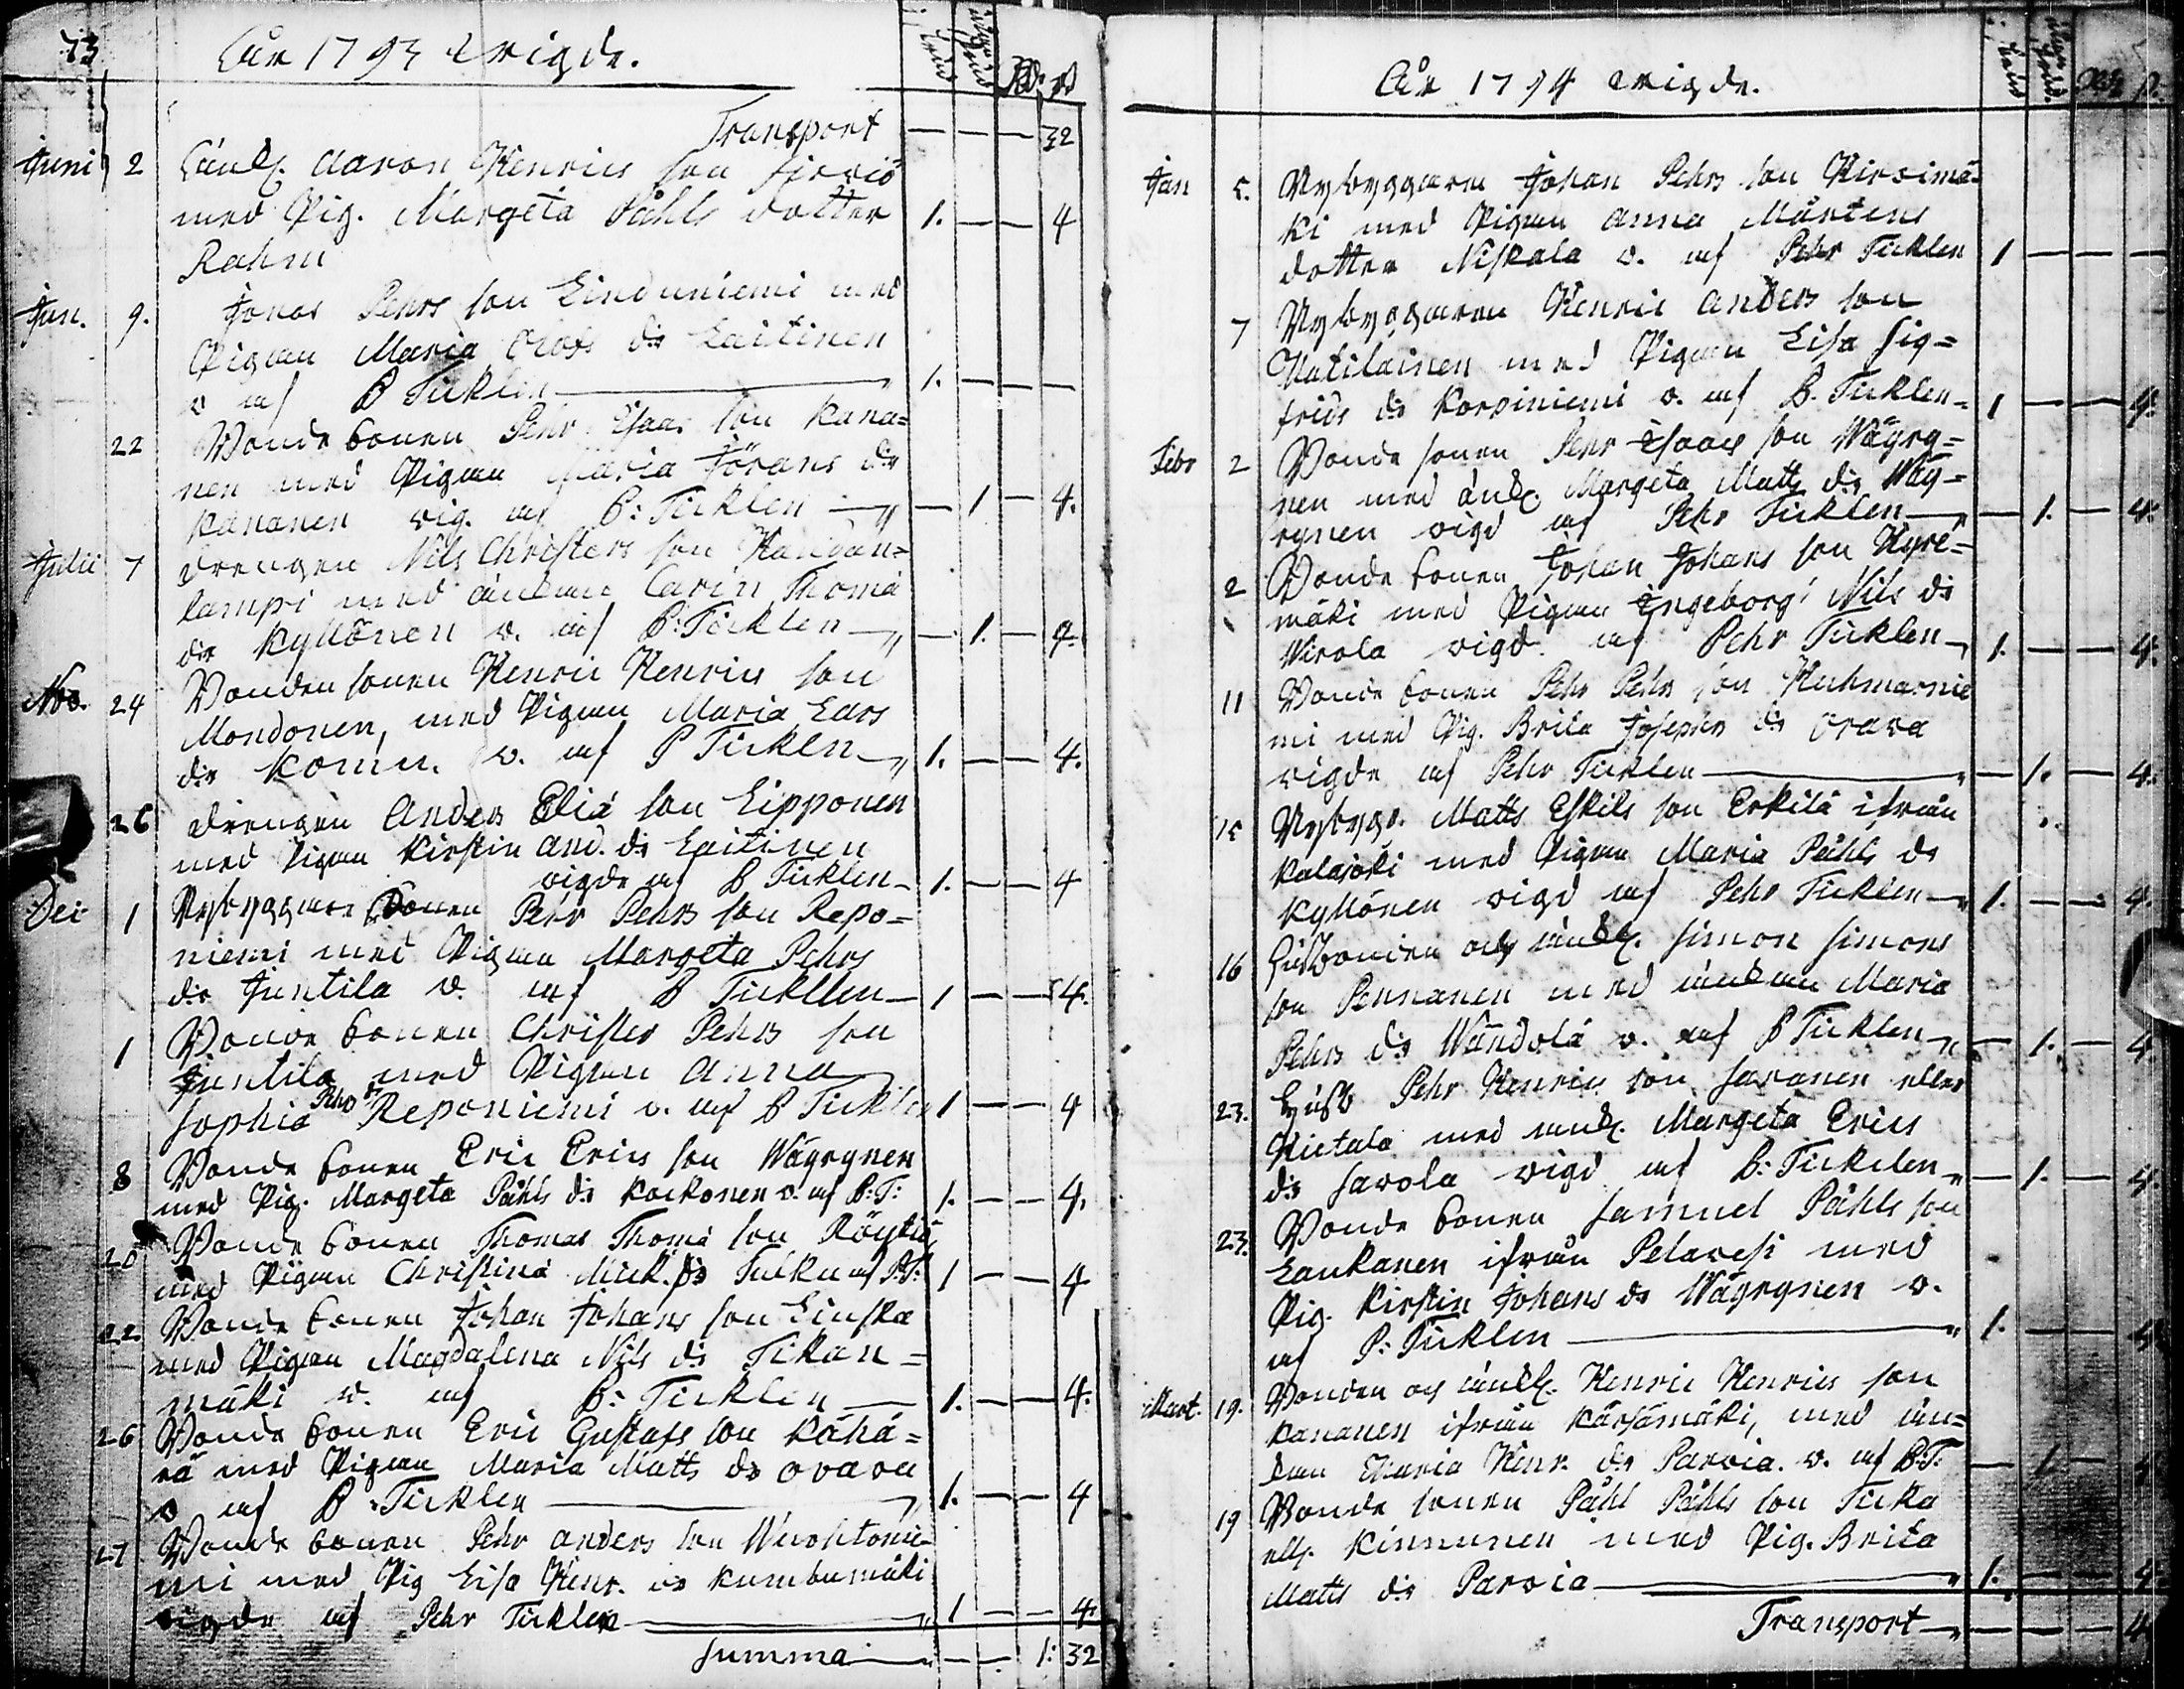 73
År 1793 wigde.
Rd: s
Transport — — — 32
Juni 2 Änkl. Aaron Henrics son Sirviö
med Pig. Margeta Påhls dotter 1. — — 4
Rahm
Jun. 9. Jonas Pehrs son Linduniemi med
Pigan Maria Olofs dr Laitinen
v af P Ticklen — 1. — —
22 Bonde sonen Pehr Isaacs son Kana=
nen med Pigan Maria Jörans dr
Kananen vig. af P: Ticklen — 1 — 4.
Julii 7 Drengen Nils Christers son Haudan=
lampi med änkan Carin Thomæ
dr Kyllönen v. af P: Ticklen — 1. — 4.
Nov. 24 Bonden sonen Henric Henrics son
Mondonen, med Pigan Maria Lars
dr Komu. v. af P Ticklen 1. — — 4.
26 Drengen Anders Eliæ son Lipponen
med Pigan Kirstin And. dr Laitinen
vigde af P Ticklen 1. — — 4
Dec 1 Nybyggare sonen Pehr Pehrs son Repo=
niemi med Pigan Margeta Pehrs
dr Juntila v. af P Ticklen 1 — — 4.
1 Bonde sonen Christer Pehrs son
Juntila med Pigan Anna
Sophia Pehrs dr Reponiemi v. af P Ticklen 1 — — 4
8 Bonde sonen Eric Erics son Wäyrynen
med Pig. Margeta Påhls dr Kockonen v. af P: T: 1. — — 4.
20 Bonde sonen Thomas Thomæ son Röytiö
med Pigan Christina Mick. dr Tulku af P:T: 1 — — 4
22. Bonde sonen Johan Johans son Linska
med Pigan Magdalena Nils dr Tikan=
mäki v. af P: Ticklen — 1. — — 4.
26 Bonde sonen Eric Gustafs son Kähä=
rä med Pigan Maria Matts dr Orava
v af P: Ticklen — 1. — — 4
27 Bonde sonen Pehr Anders son Wuohtonie=
mi med Pig Lisa Henr. dr Kumbumäki
vigde af Pehr Ticklen — 1 — — 4.
Summa — — 1: 32
År 1794 wigde.
Jan 5. Nybyggaren Johan Pehrs son Hirvimä=
ki med Pigan Anna Mårtens
dotter Niskala v. af Pehr Ticklen 1 — — —
7 Nybyggaren Henric Anders son
Matilainen med Pigan Lisa Sig=
frids dr Korpiniemi v. af P. Ticklen 1 — — 4.
Febr 2 Bonde sonen Pehr Isaacs son Wäyry=
nen med änk. Margeta Matts dr Wäy=
rynen vigd af Pehr Ticklen — 1. — 4.
2 Bonde sonen Johan Johans son Hyre=
mäki med Pigan Ingeborg Nils dr
Nivala vigd. af Pehr Ticklen 1. — — 4.
11 Bonde sonen Pehr Pehrs son Huhmarnie
mi med Pig. Brita Josephs dr Orava
vigde af Pehr Ticklen — 1. — 4.
15 Nybygg. Matts Eskils son Erkilä ifrån
Kalajoki med Pigan Maria Påhls dr
Kyllönen vigd af Pehr Ticklen 1. — — 4.
16 Husbonden och änkl. Simon Simons
son Pennanen med änkan Maria
Pehrs dr Wändölä v. af P Ticklen — 1. — 4
23. Husb Pehr Henrics son Saranen eller
Hietala med änk. Margeta Erics
dr Savola vigd af P: Ticklen — 1. — 4.
23. Bonde sonen Samuel Påhls son
Laukanen ifrån Pelavesi med
Pig. Kirstin Johans dr Wäyrynen v.
af P: Ticklen — 1. — — 4
Mart. 19. Bonden och änkl. Henric Henrics son
Kananen ifrån Kärsämäki, med än=
kan Maria Henr. dr Parvia. v. af P:T. — 1 — 4
19 Bonde sonen Påhl Påhls son Ticka
ell. Kinnunen med Pig. Brita
Matts dr Parvia — 1. — — 4.
Transport — — — 4